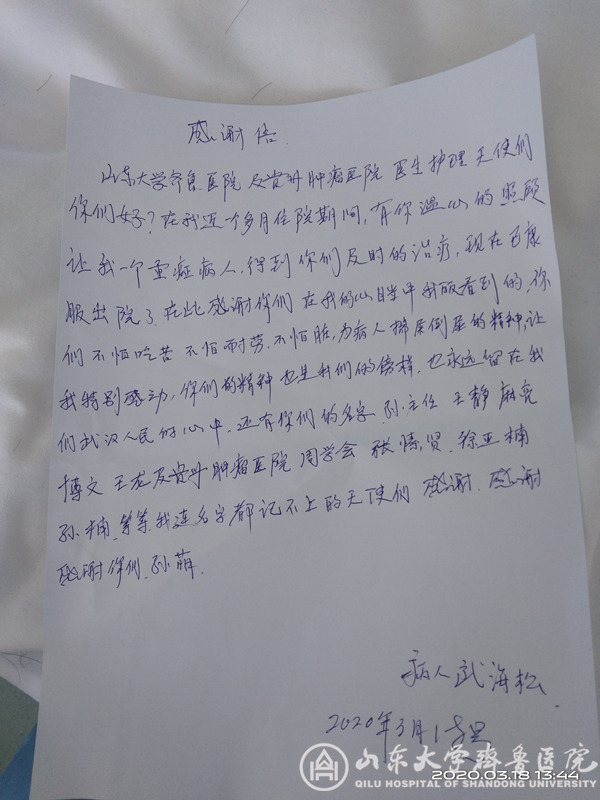 感谢信.
山东大学齐鲁医院及贵州肿瘤医院 医生护理天使们
你们好?在我近一个多月住院期间,有你温心的照顾
让我一个重症病人,得到你们及时的治疗,现在已康
服出院了.在此感谢你们 在我的心目中我眼看到的,你
们不怕吃苦 不怕耐劳.不怕脏,为病人 屎倒尿的精神,让
我特别感动,你们的精神也是我们的榜样.也永远留在我
们武汉人民的心中.还有你们的名字.孙主任 王静 麻亮
博文 王龙及贵州肿瘤医院 周学会 张 贤.徐亚楠
孙楠.等等我连名字都记不上的天使们 感谢.感谢
感谢你们.孙萍.
病人武海松
2020年3月1
山东大学齐鲁医院
QILU HOSPITAL OF SHANDONG UNIVERSITY
2020.03.18 13:44